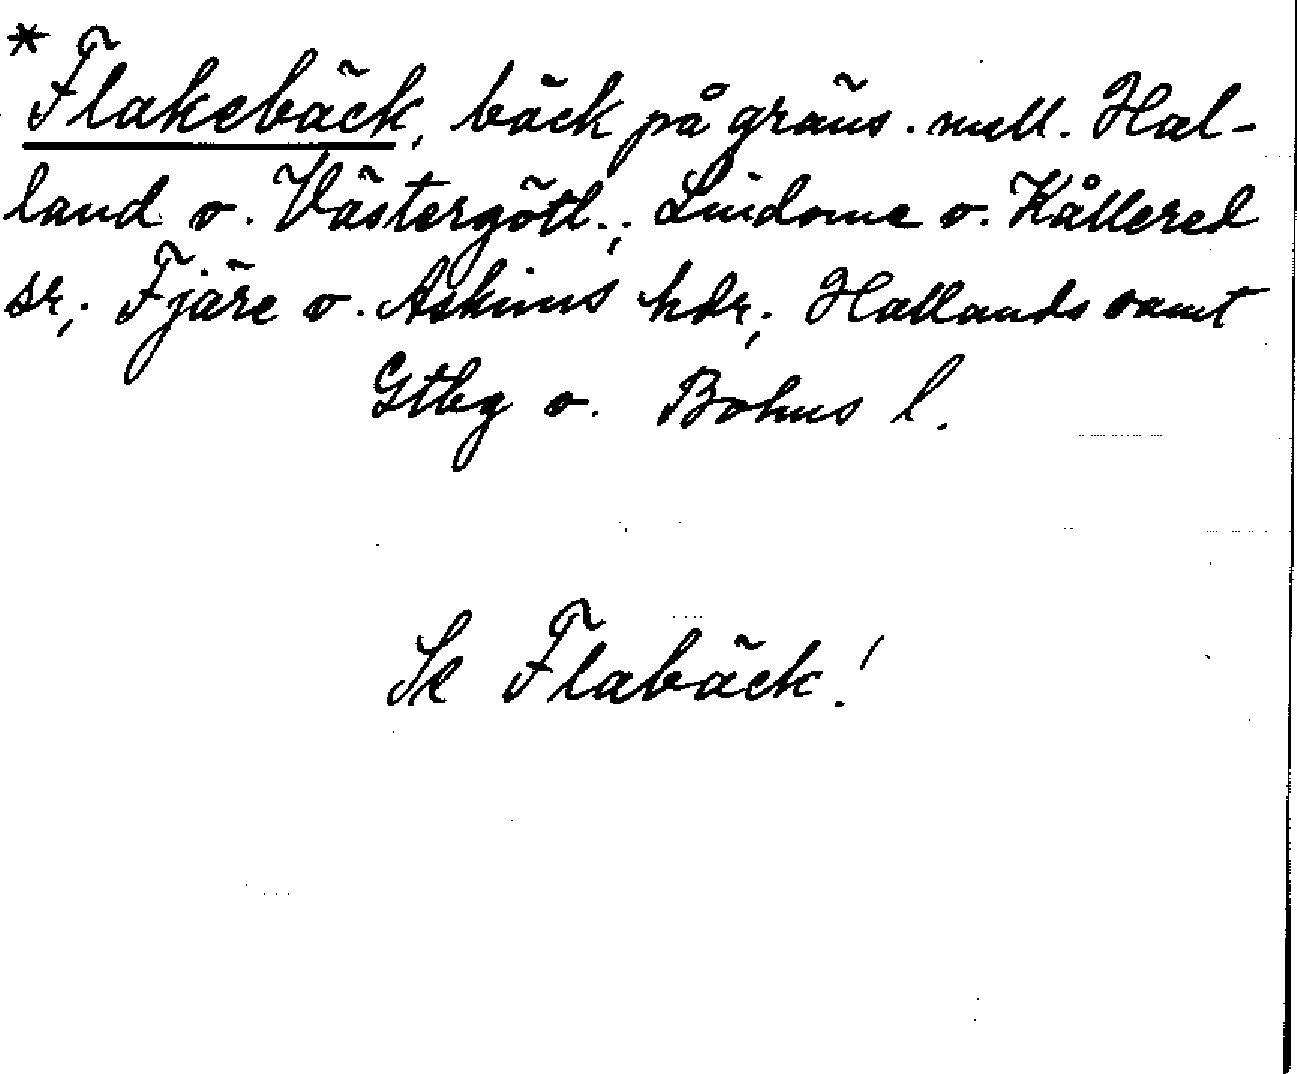 *Flakebäck, bäck på gräns. mell. Hal-
land o. Västergötl.; Lindome o. Kållered
sr; Fjäre o. Askims hdr; Hallands samt
Gtbg o. Bohus l.
Se Flabäck!